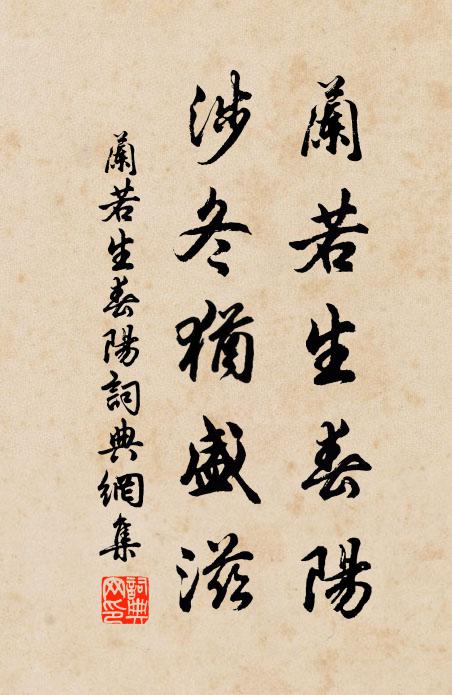 蘭若生春陽
涉冬猶盛滋
蘭若生春陽詞典網集
詞典網印